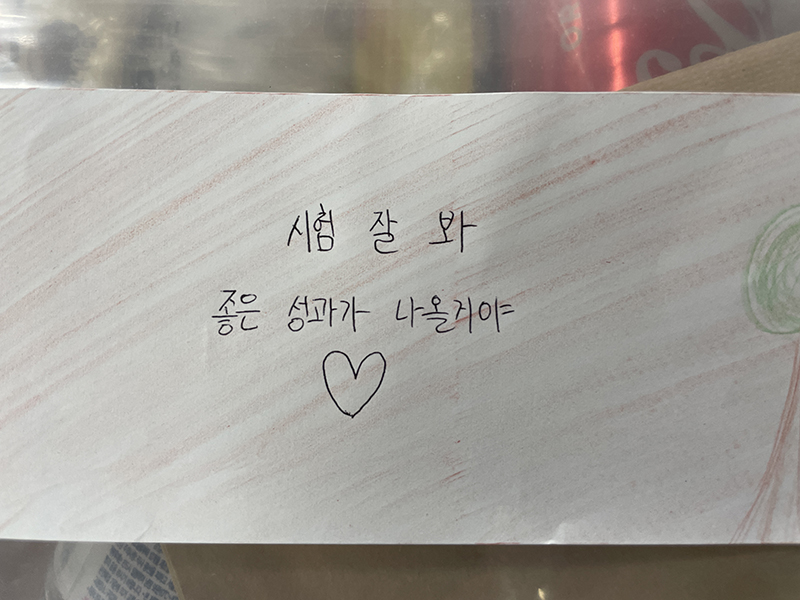 시험 잘 봐
좋은 성과가 나올거야